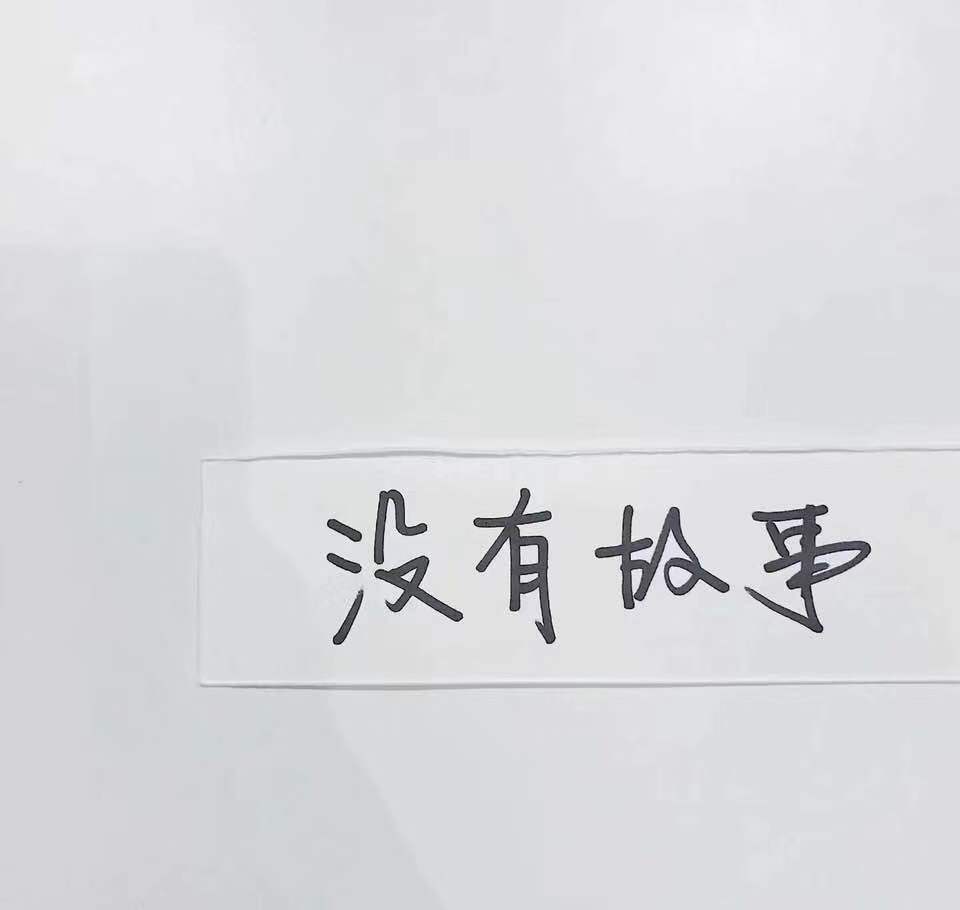 没有故事